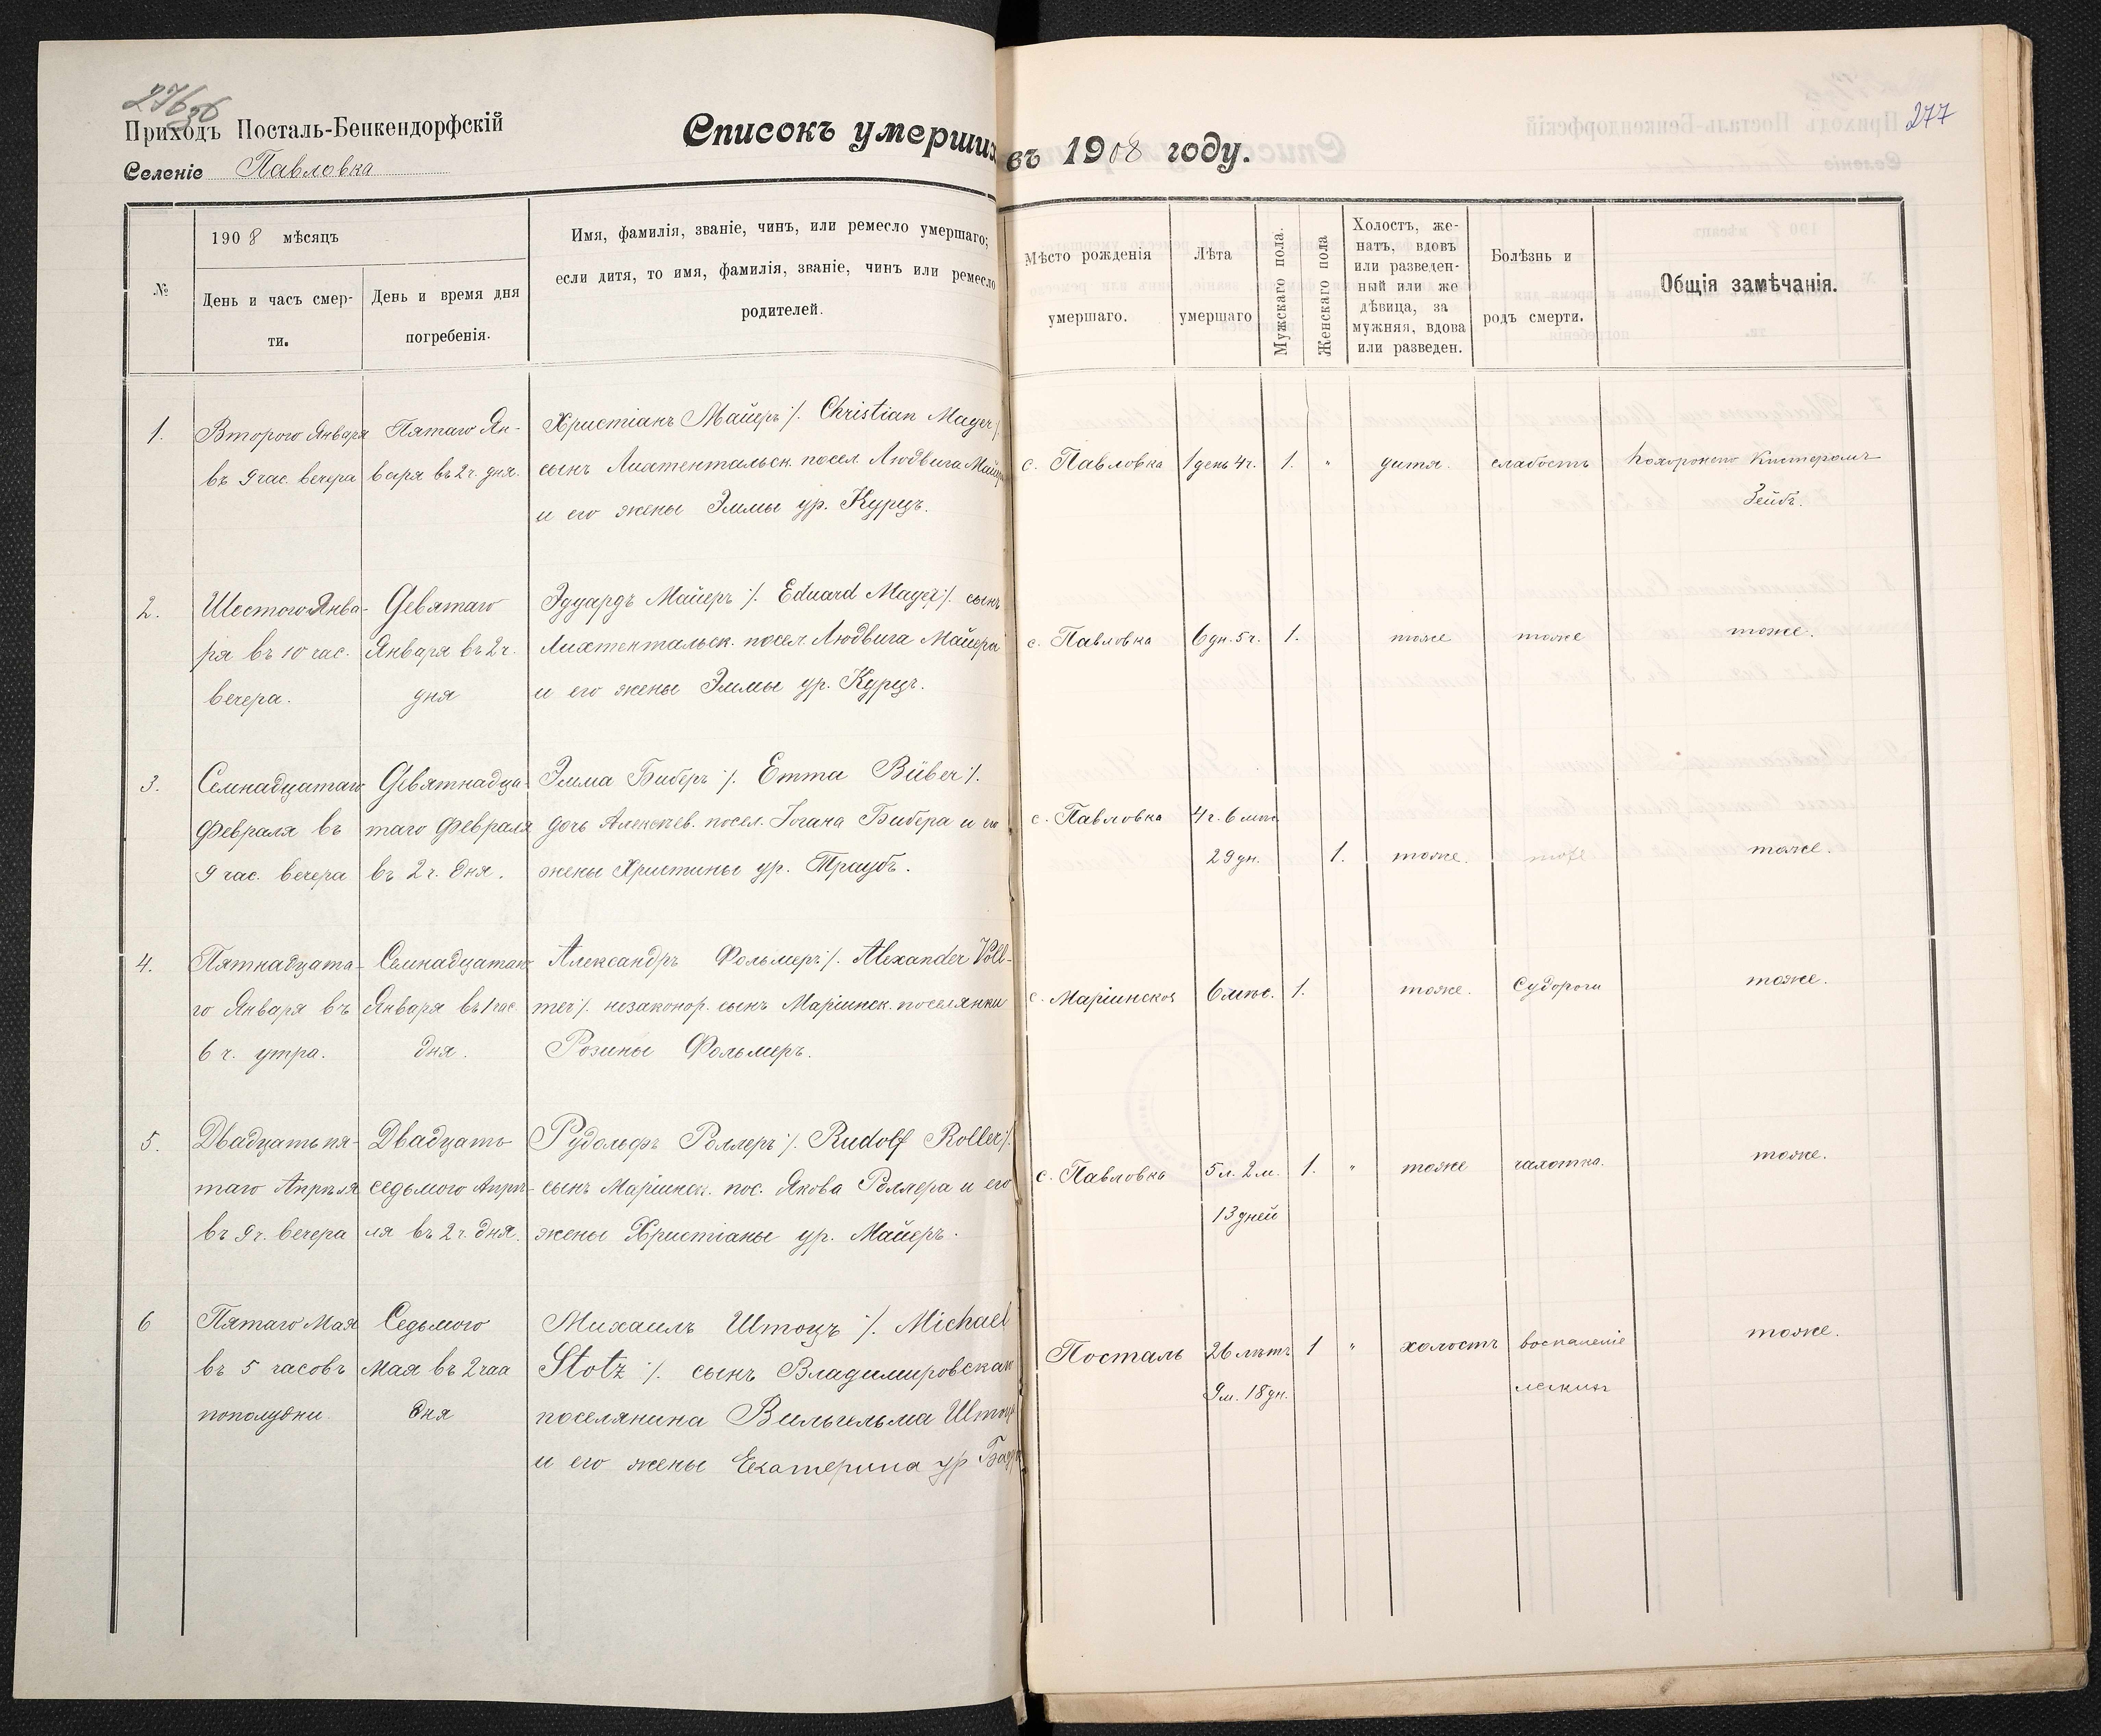 276
Приходъ Посталь-Бенкендорфскій
Селеніе Павловка
Списокъ умершихъ
№
1908 мѣсяцъ
День и часъ смер-
ти.
День и время дня
погребенія.
Имя, фамилія, званіе, чинъ, или ремесло умершаго;
если дитя, то имя, фамилія, званіе, чинъ или ремесло
родителей.
1.
Второго Января
въ 9 час. вечера
Пятаго Ян-
варя въ 2 ч. дня.
Христіанъ Майеръ ⁒ Christian Mayer ⁒
сынъ Лихтентальск. посел. Людвига Майера
и его жены Эммы ур. Курцъ.
2.
Шестого Янва-
ря въ 10 час.
вечера.
Девятаго
Января въ 2 ч.
дня
Эдуардъ Майеръ ⁒ Eduard Mayer ⁒ сынъ
Лихтентальск. посел. Людвига Майера
и его жены Эммы ур. Курцъ.
3.
Семнадцатаго
Февраля въ
9 час. вечера
Девятнадца-
таго Февраля
въ 2 ч. дня.
Эмма Биберъ ⁒ Emma Büber ⁒
дочь Алексѣев. посел. Іогана Бибера и его
жены Христины ур. Траубъ.
4.
Пятнадцата-
го Января въ
6 ч. утра.
Семнадцатаго
Января въ 1 час.
дня.
Александръ Фольмеръ ⁒ Alexander Voll-
mer ⁒ незаконор. сынъ Маріинск. поселянки
Розины Фольмеръ.
5.
Двадцать пя-
таго Апрѣля
въ 9 ч. вечера
Двадцать
седьмого Апрѣ-
ля въ 2 ч. дня.
Рудольфъ Роллеръ ⁒ Rudolf Roller ⁒
сынъ Маріинск. пос. Якова Роллера и его
жены Христіаны ур. Майеръ.
6
Пятаго Мая
въ 5 часовъ
пополудни.
Седьмого
Мая въ 2 часа
дня
Михаилъ Штоцъ ⁒ Michael
Stotz ⁒ сынъ Владимировскаго
поселянина Вильгельма Штоца
и его жены Екатерина ур
277
въ 1908 году.
Мѣсто рожденія
умершаго.
Лѣта
умершаго
Мужскаго пола.
Женскаго пола
Холостъ, же-
натъ, вдовъ
или разведен-
ный или же
дѣвица, за
мужняя, вдова
или разведен.
Болѣзнь и
родъ смерти.
Общія замѣчанія.
с. Павловка 1 день 4 ч. 1. " дитя. слабость похоронено Кистеромъ
Зейбъ.
с. Павловка 6 дн. 5 ч. 1. тоже тоже тоже.
с. Павловка 4 г. 6 мѣс.
29 дн. 1. тоже. тоже тоже.
с. Маріинское 6 мѣс. 1. тоже. Судороги тоже.
с. Павловка 5 л. 2 м. 1. " тоже чахотка. тоже.
13 дней
Посталь 26 лѣтъ 1 " холостъ воспаленіе тоже.
9 м. 18 дн. легкихъ